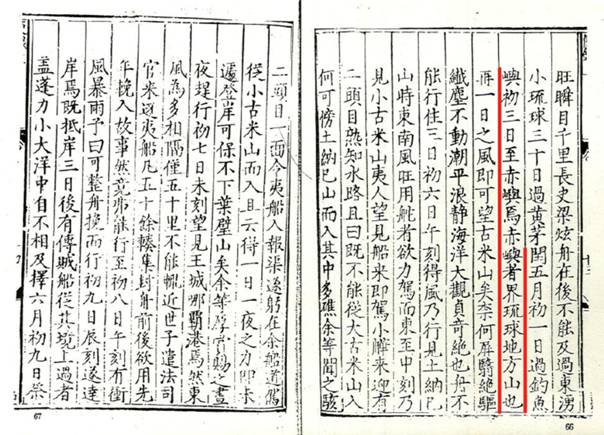 旺瞬目千里長史梁炫舟在後不能及過東湧
小琉球三十日過黃茅閏五月初一日過釣魚
嶼初三日至赤嶼焉赤嶼者界琉球地方山也
再一日之風即可望古米山矣奈何屏翳絶驅
纖塵不動潮平浪静海洋大觀真奇絶也舟不
能行住三日初六日午刻得風乃行見土納己
山時東南風旺用舵者欲力駕而東至申刻乃
見小古米山夷人望見船來即駕小艍來迎有
二頭目熟知水路且曰既不能從大古米山入
何可傍土納己山而入其中多礁余等聞之駭
66
二頭目一面令夷船入報渠遂躬在余船道駕
從小古米山而入且云得一日一夜之力即未
遽登岸可保不下葉壁山矣余等厚賞賜之晝
夜趕行初七日未刻望見王城那霸港焉然東
風為多相隔僅五十里不能輒近世子遣法司
官來迓夷船凡五十餘艘集封舟前後欲用先
年挽入故事然竟弗能行至初八日午刻有衝
風暴雨予曰可整舟挽而行初九日辰刻遂達
岸焉既抵岸三日後有傳賊船從其境上過者
蓋蓬力小大洋中自不相及擇六月初九日祭
67